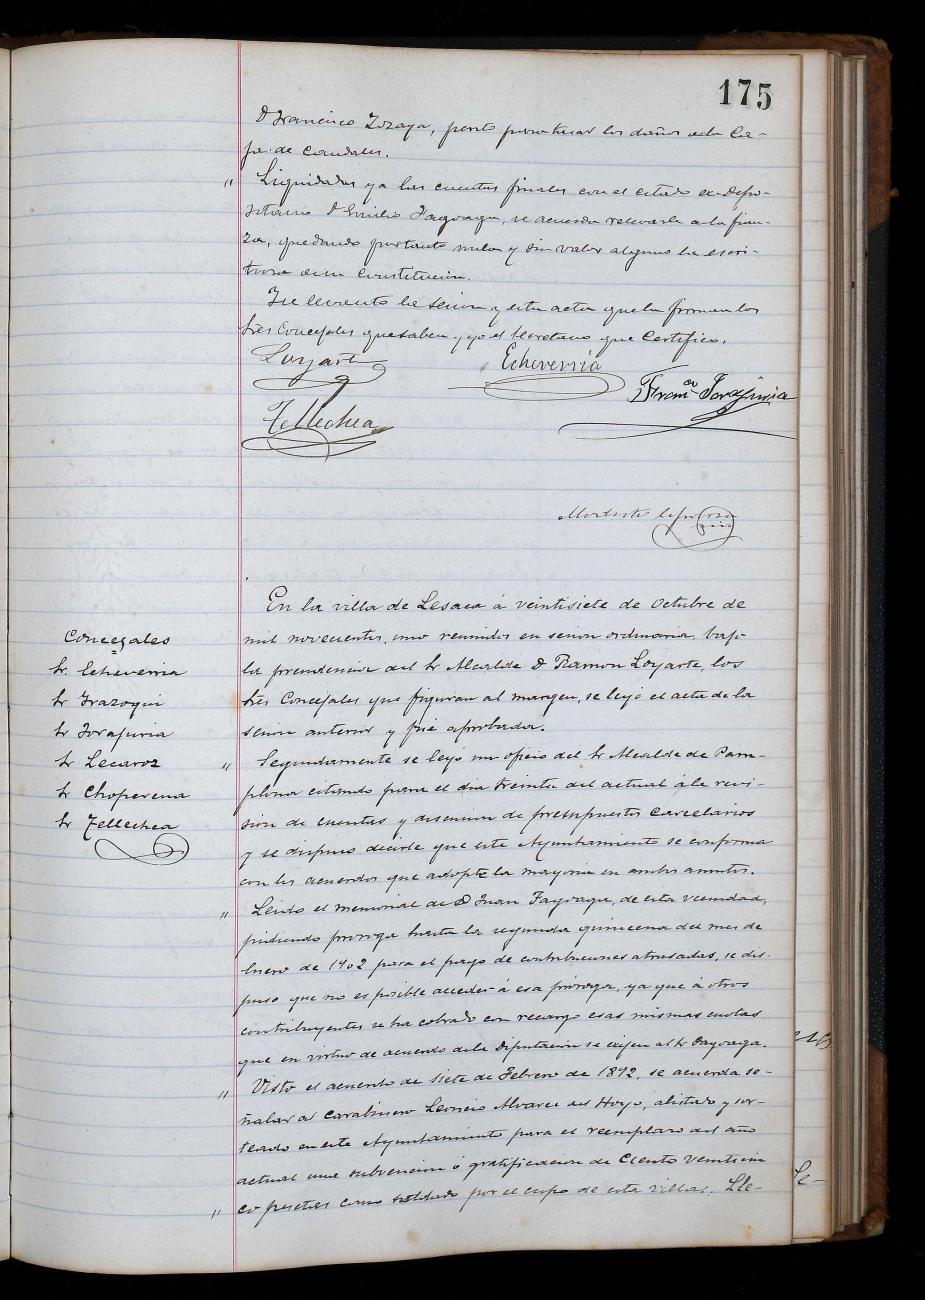 175
D Francisco Zozaya, perito para tasar los daños en la Ca-
ja de Caudales.
" Liquidadas ya las cuentas finales con el citado ex-Depo-
sitario D Emilio Fagoaga, se acuerda relevarle a la fian-
za, quedando por tanto nula y sin valor alguno la escri-
tura de su constitucion.
Se levantó la sesion y esta acta que la firman los
Sres Concejales que saben, y yo el Secretario que Certifico.
Loyarte
Echeverria
Franco Torajinia
Tellechea
Modesto
En la villa de Lesaca á veintisiete de Octubre de
mil novecientos uno reunidos en sesion ordinaria, bajo
la presidencia del Sr Alcalde D Ramon Loyarte, los
Sres Concejales que figuran al margen, se leyó el acta de la
sesion anterior y fué aprobada.
Concejales
Sr Echeverria
Sr Irazoqui
Sr Torajinia
Sr Lecaroz
Sr Choperena
Sr Tellechea
" Segundamente se leyó un oficio del Sr Alcalde de Pam-
plona citando para el dia treinta del actual á la revi-
sion de cuentas y discusion de presupuestos carcelarios
y se dispuso decirle que este Ayuntamiento se conforma
con los acuerdos que adopte la mayoria en ambos asuntos.
" Leido el memorial de D Juan Fagoaga, de esta vecindad,
pidiendo proroga hasta la segunda quincena del mes de
Enero de 1902 para el pago de contribuciones atrasadas, se dis-
puso que no es posible acceder á esa próroga, ya que á otros
contribuyentes se ha cobrado con recargo esas mismas cuotas
que en virtud de acuerdo de la Diputacion se exijen al Sr Fagoaga.
" Visto el acuerdo de siete de Febrero de 1892, se acuerda se-
ñalar al carabinero Leoncio Alvarez del Hoyo, alistado y sor-
teado en este Ayuntamiento para el reemplazo del año
actual una subvencion ó gratificacion de Ciento veinticin
co pesetas como soldado por el cupo de esta villa.
" Lle-